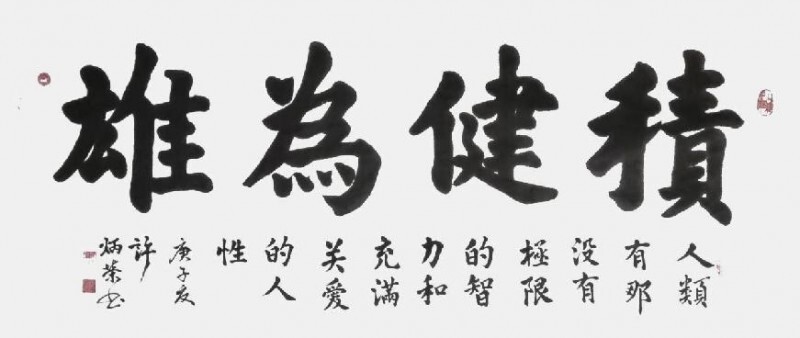 積健為雄
人類
有那
没有
極限
的智
力和
充滿
关愛
的人
性
庚子夏
许
炳榮书